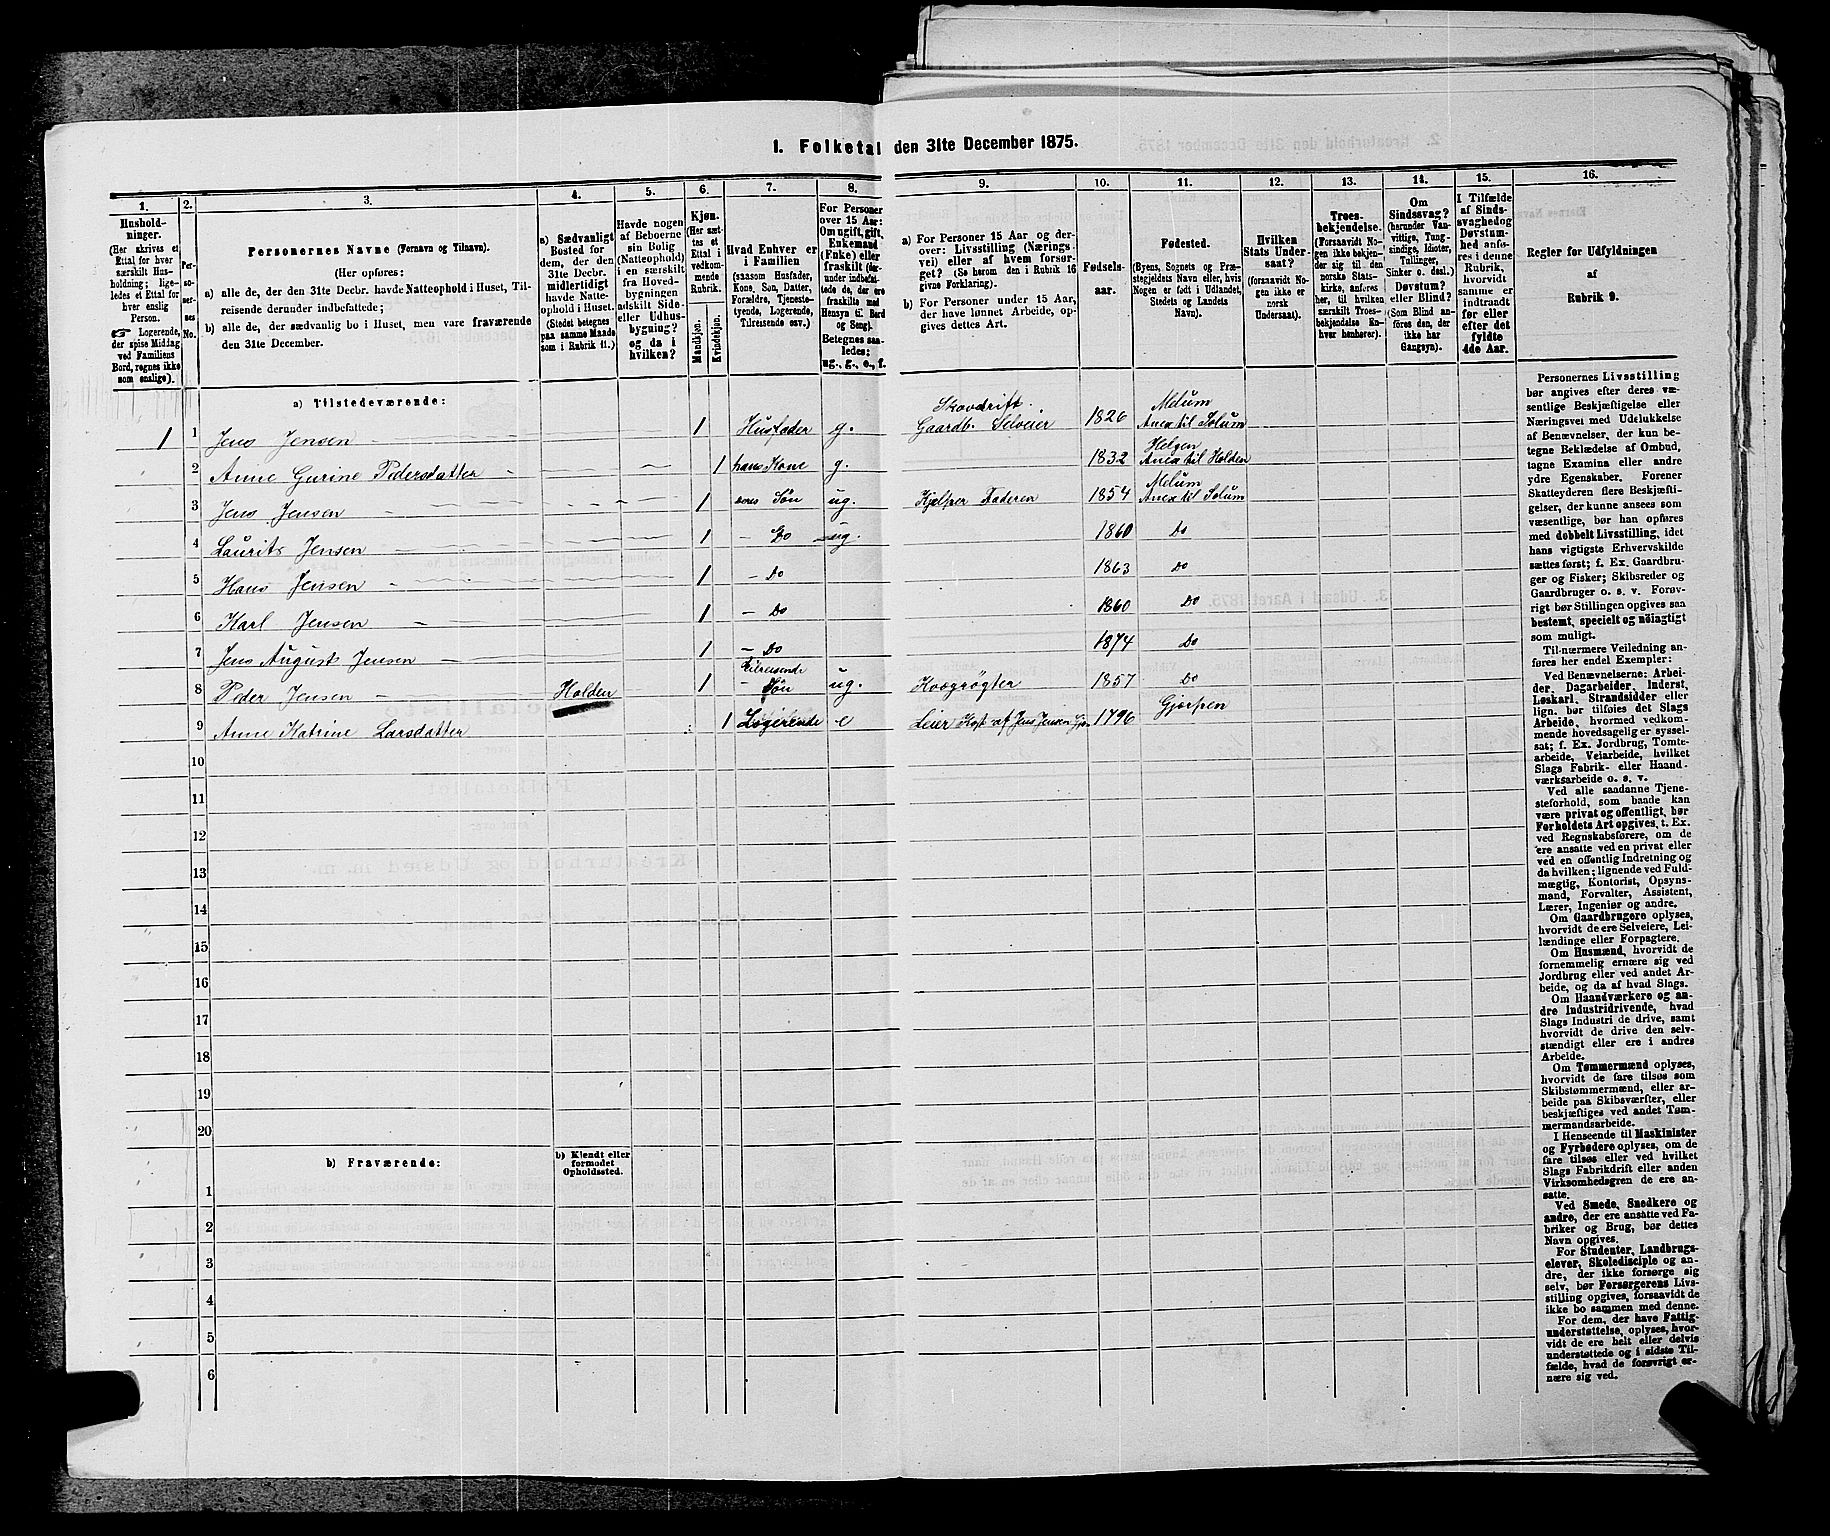 1. Folketal den 31te December 1875.
1.
Hushold-
ninger.
(Her skrives et
Ettal for hver
særskilt Hus-
holdning; lige-
ledes et Ettal for
hver enslig
Person.
☞ Logerende,
der spise Middag
ved Familiens
Bord, regnes ikke
som enslige).
2.
Per-
so-
ner-
nes
No.
3.
Personernes Navne (Fornavn og Tilnavn).
(Her opføres:
a) alle de, der den 31te Decbr. havde Natteophold i Huset, Til-
reisende derunder indbefattede;
b) alle de, der sædvanlig bo i Huset, men vare fraværende
den 31te December.
4.
a) Sædvanligt
Bosted for
dem, der den
31te Decbr.
midlertidigt
havde Natte-
ophold i Huset.
(Stedet betegnes
paa samme Maade
som i Rubrik 11.)
5.
Havde nogen
af Beboerne
sin Bolig
(Natteophold)
i en særskilt
fra Hoved-
bygningen
adskilt Side-
eller Udhus-
bygning?
og da i
hvilken?
6.
Kjøn.
(Her sæt-
tes et
Ettal i
vedkom-
mende
Rubrik.
Mandkjøn.
Kvindekjøn.
7.
Hvad Enhver er
i Familien
(saasom Husfader,
Kone, Søn, Datter,
Forældre, Tjeneste-
tyende, Logerende,
Tilreisende osv.)
8.
For Personer
over 15 Aar:
Om ugift, gift,
Enkemand
(Enke) eller
fraskilt
Betegnes saa-
ledes:
ug., g., e., f.
9.
a) For Personer 15 Aar og der-
over: Livsstilling (Nærings-
vei) eller af hvem forsør-
get? (Se herom den i Rubrik 16
givne Forklaring).
b) For Personer under 15 Aar,
der have lønnet Arbeide, op-
gives dettes Art.
10.
Fødsels-
aar.
11.
Fødested.
(Byens, Sognets og Præ-
stegjeldets Navn eller, hvis
Nogen er født i Udlandet,
Stedets og Landets
Navn).
12.
Hvilken
Stats Under-
saat?
(forsaavidt No-
gen ikke er
norsk
Undersaat).
13.
Troes-
bekjendelse.
(Forsaavidt No-
gen ikke bekjen-
der sig til den
norske Stats-
kirke, anføres
her, til hvilken
særskilt Troes-
bekjendelse En-
hver henhører).
14.
Om
Sindssvag?
(herunder Van-
vittige, Tung-
sindige, Idioter,
Tullinger,
Sinker o. desl.)
Døvstum?
eller Blind?
(Som Blind an-
føres den, der
ikke har
Gangsyn).
15.
I Tilfælde
af Sinds-
svaghed og
Døvstum-
hed anfø-
res i denne
Rubrik,
hvorvidt
samme er
indtraadt
før eller
efter det
fyldte
4de Aar.
16.
Regler for Udfyldningen
af
Rubrik 9.
a) Tilstedeværende:
1 1 Jens Jensen 1 Husfader g. Skovdrift. Gaardb. Selveier 1826 Melum Anex til Solum
2 Anne Gurine Pedersdatter 1 hans Kone g. 1832 Helgen Anex til Holden
3 Jens Jensen 1 Søn ug. Hjelper Faderen 1854 Melum Anex til Solum
4 Laurits Jensen 1 Do ug. 1860 Do
5 Hans Jensen 1 Do 1863 Do
6 Karl Jensen 1 Do 1860 Do
7 Jens August Jensen 1 Do 1874 Do
8 Peder Jensen Holden 1 Tilreisende Søn ug. Kvægrøgter 1857 Do
9 Anne Katrine Larsdatter 1 Logerende e Leier Kost af Jens Jensen 1796 Gjerpen
10
11
12
13
14
15
16
17
18
19
20
b) Fraværende:
b) Kjendt eller
formodet
Opholdssted.
1
2
3
4
5
6
Personernes Livsstilling
bør angives efter deres væ-
sentlige Beskjæftigelse eller
Næringsvei med Udelukkelse
af Benævnelser, der kun be-
tegne Beklædelse af Ombud,
tagne Examina eller andre
ydre Egenskaber. Forener
Skatteyderen flere Beskjæfti-
gelser, der kunne ansees som
væsentlige, bør han opføres
med dobbelt Livsstilling, idet
hans vigtigste Erhvervskilde
sættes først; f. Ex. Gaardbru-
ger og Fisker; Skibsreder og
Gaardbruger o. s. v. Forøv-
rigt bør Stillingen opgives saa
bestemt, specielt og nöiagtigt
som muligt.
Til nærmere Veiledning an-
føres her endel Exempler:
Ved Benævnelserne: Arbei-
der, Dagarbeider, Inderst,
Løskarl, Strandsidder eller
lign. bør tilføies det Slags
Arbeide, hvormed vedkom-
mende hovedsagelig er syssel-
sat; f. Ex. Jordbrug, Tomte-
arbeide, Veiarbeide, hvilket
Slags Fabrik- eller Haand-
værksarbeide o. s. v.
Ved alle saadanne Tjene-
steforhold, som baade kan
være privat og offentligt, bør
Forholdets Art opgives, t. Ex.
ved Regnskabsførere, om de
ere ansatte ved en privat eller
ved en offentlig Indretning og
da hvilken; lignende ved Fuld-
mægtig, Kontorist, Opsyns-
mand, Forvalter, Assistent,
Lærer, Ingeniør og andre.
Om Gaardbrugere oplyses,
hvorvidt de ere Selveiere, Lei-
lændinge eller Forpagtere.
Om Husmænd, hvorvidt de
fornemmelig ernære sig ved
Jordbrug eller ved andet Ar-
beide, og da af hvad Slags.
Om Haandværkere og an-
dre Industridrivende, hvad
Slags Industri de drive, samt
hvorvidt de drive den selv-
stændigt eller ere i andres
Arbeide.
Om Tømmermænd oplyses,
hvorvidt de fare tilsøs som
Skibstømmermænd, eller ar-
beide paa Skibsværfter, eller
beskjæftiges ved andet Tøm-
mermandsarbeide.
I Henseende til Maskinister
og Fyrbødere oplyses, om de
fare tilsøs eller ved hvilket
Slags Fabrikdrift eller anden
Virksomhedsgren de ere an-
satte.
Ved Smede, Snedkere og
andre, der ere ansatte ved Fa-
briker og Brug, bør dettes
Navn opgives.
For Studenter, Landbrugs-
elever, Skoledisciple og an-
dre, der ikke forsørge sig
selv, bør Forsørgerens Livs-
stilling opgives, forsaavidt de
ikke bo sammen med denne.
For dem, der have Fattig-
understøttelse, oplyses, hvor-
vidt de ere helt eller delvis
understøttede og i sidste Til-
fælde, hvad de forøvrigt er-
nære sig ved.